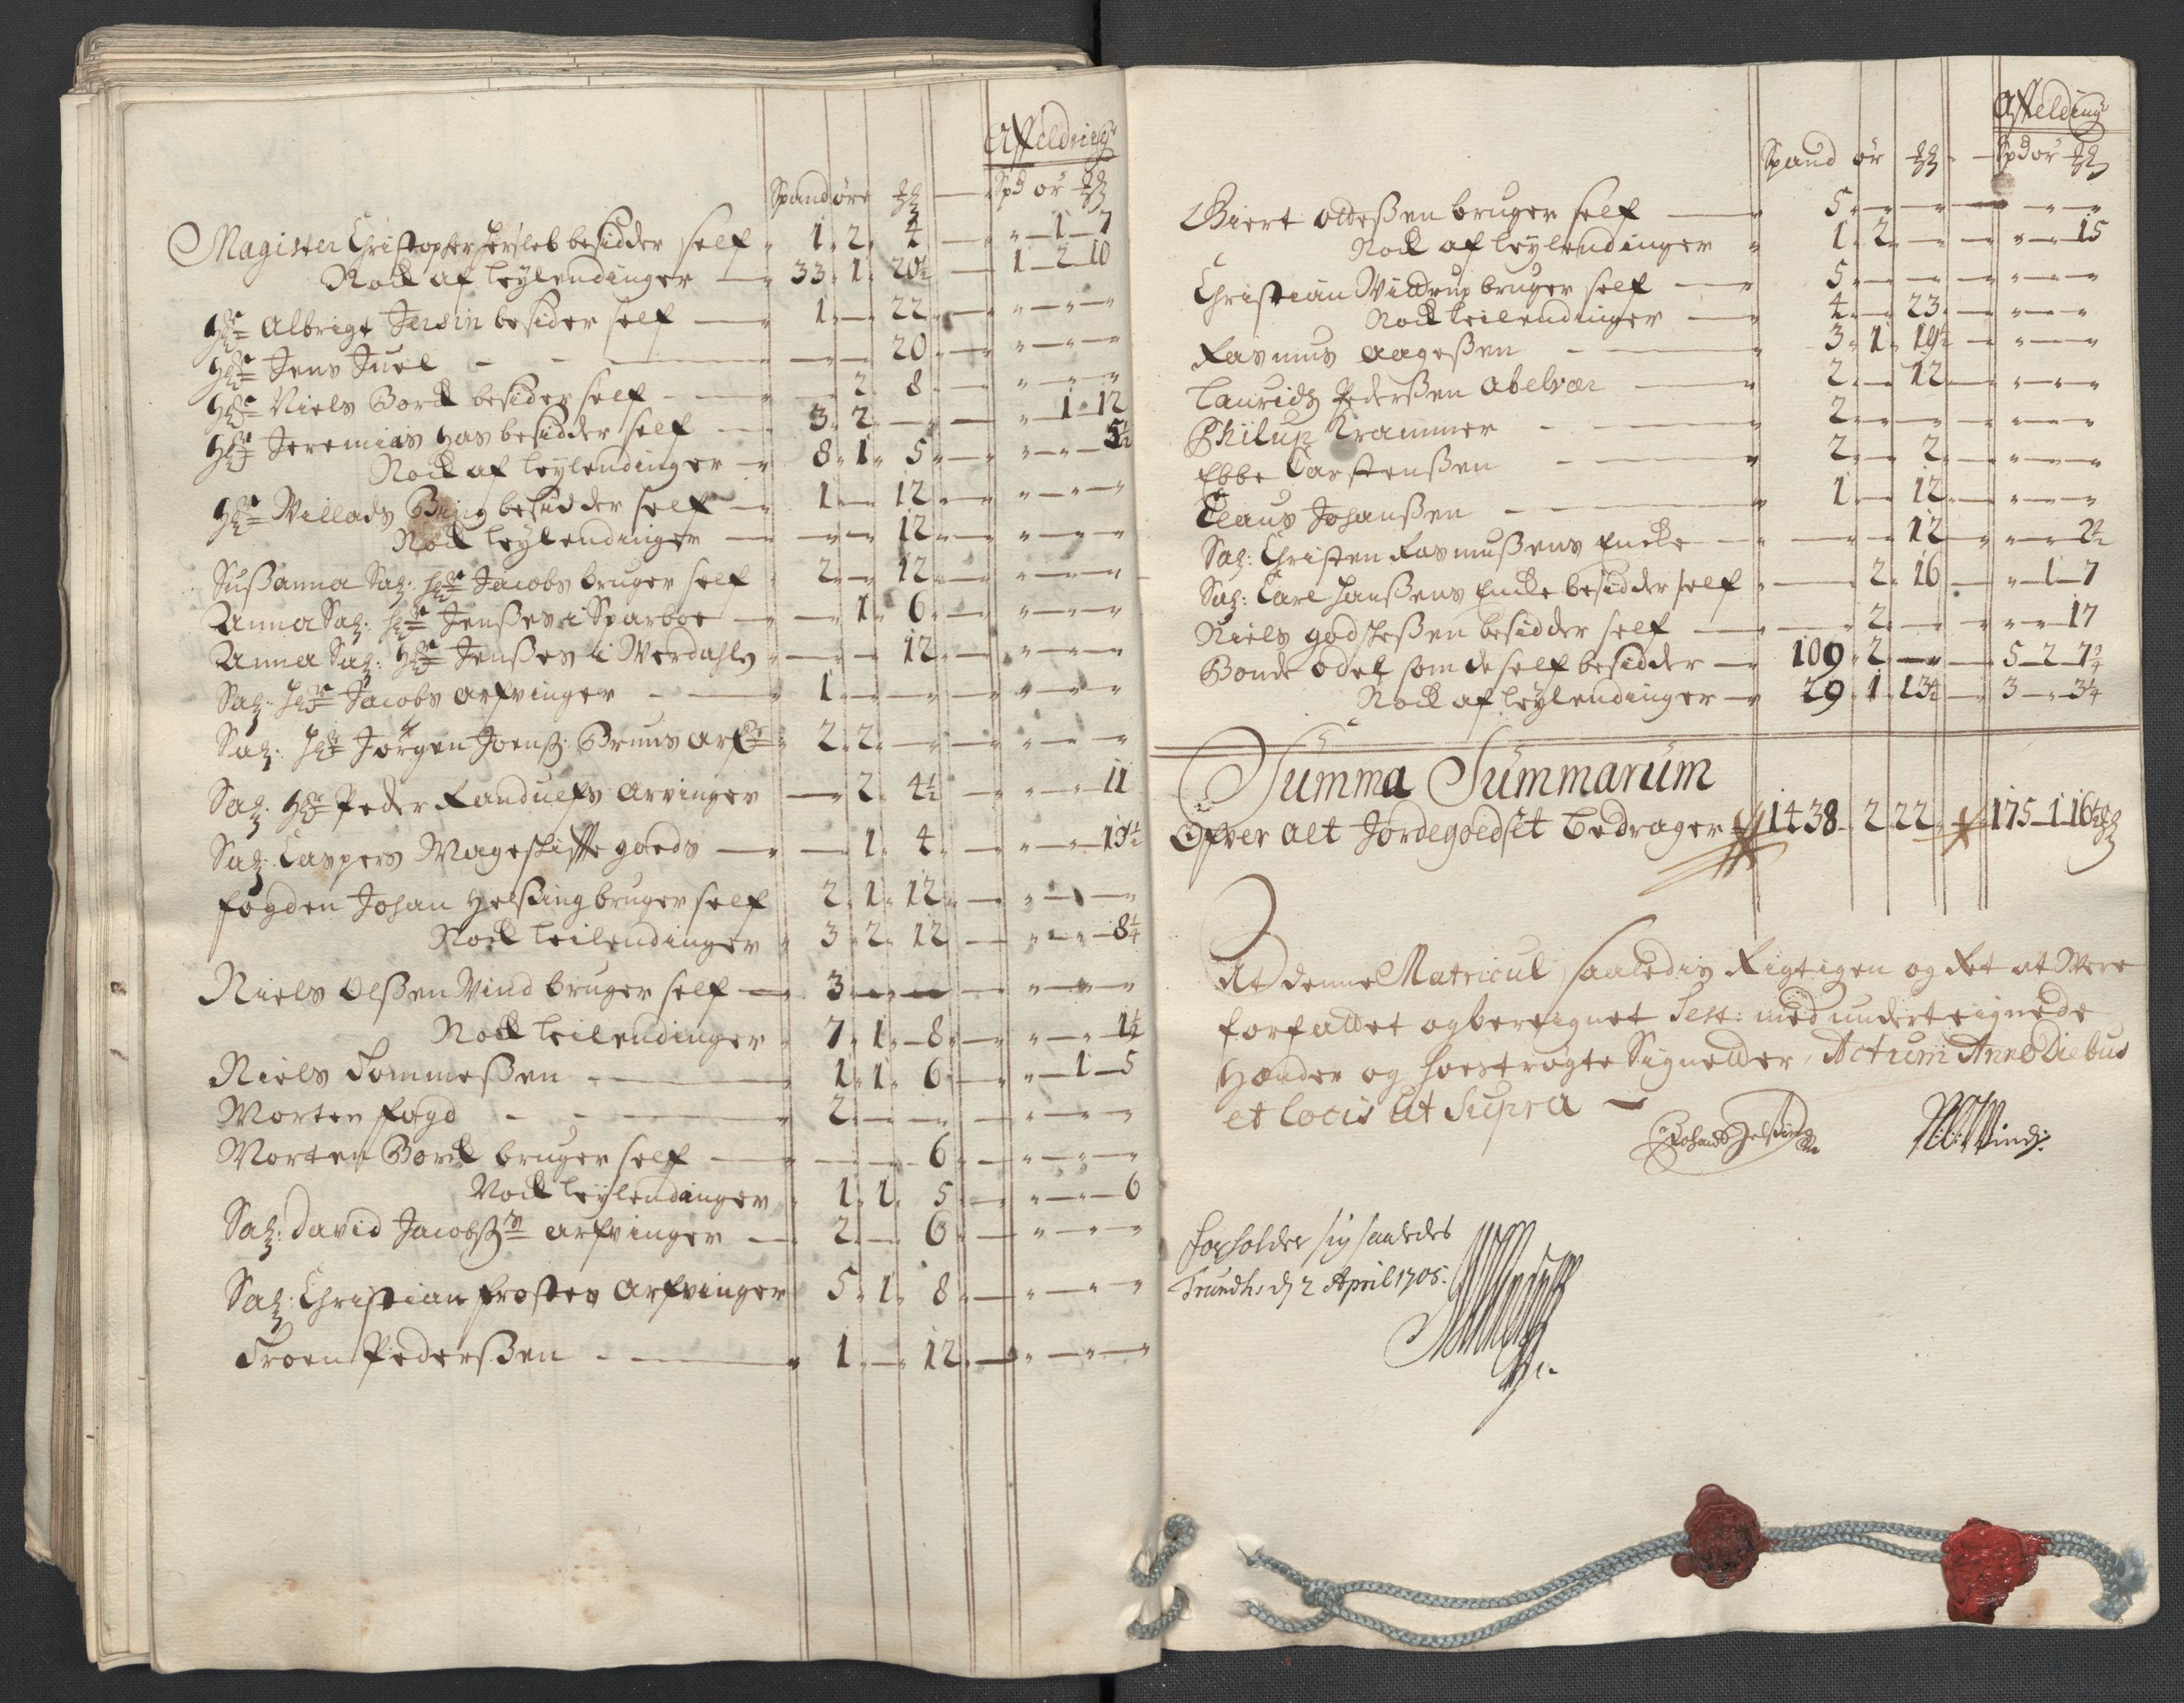 Affeldning
Spand øre — Spd ør
Magister Christopher Hersleb besidder self 1 2 4 — 1 7
Nock af leÿlendinger 33 1 20½ — 1 2 10
Hr Albrigt Jersin besider self 1 — 22
Hr Jens Juel — 20
Hr Niels Borck besider self — 2 8
Hr Jeremias Has besidder self 3 2 — — 1 12
Nock af leÿlendinger 8 1 5 — 5½
Hr Villads Bing besidder self 1 — 12
Nock leÿlendinger — 12
Sußanna Sal: Hr Jacobs bruger self 2 — 12
Anna Sal: Hr Jenßes i Sparboe — 1 6
Anna Sal: Hr Jenßes i Werdahls — 12
Sal: Hr Jacobs arfvinger 1
Sal: Hr Jørgen Joenß: Bruns arf 2 2
Sal: Hr Peder Randulfs arvinger — 2 4½ — 11
Sal: Caspers Mageskiffte goeds — 1 4 — 13½
fogden Johan Helßing bruger self 2 1 12
Nock leilendinger 3 2 12 — 8¼
Niels Olßen Vind bruger self 3
Nock leilendinger 7 1 8 — 1½
Niels Tommeßen 1 1 6 — 1 5
Morten fogd 2
Morten Borck bruger self — 6
Nock leÿlendinger 1 1 5 — 6
Sal: David Jacobß arfvinger 2 — 6
Sal: Christian frostes Arfvinger 5 1 8
Troen Pederßen 1 — 12
Affelding
Spand ør — Spd ør
Biert otteßen bruger self 5
Nock af leÿlendinger 1 2 — 15
Christian Vittrup bruger self 5
Nock leilendinger 4 — 23
Rasmus Aageßen 3 1 19½
Lauridz Pederßen Abelvær 2 — 12
Philup Krammer 2
Ebbe Carstenßen 2 — 2
Claus Johanßen 1 — 12
Sal: Christen Rasmußens Encke — 12 — 2½
Sal: Carl Hanßens Encke besidder self — 2 16 — 1 7
Niels godskeßen besidder self — 2 — 17
Bonde odel som de self besidder 109 2 — 5 2 7¾
Nock af leÿlendinger 29 1 13½ — 3 — 3¼
Summa Summarum
Ofver alt Jordegoedset bedrager 1438 2 22 — 175 1 16
At denne Matricul saaledis Rigtigen og Ret at Were
forfattet og bereignet Test: med underteignede
Hænder og hoestrøgte Signetter, Actum Anno Diebus
et locis ut Supra
Johan Helsing
N:O:Vind:
forholder sig saaledes
Trundh: d 2 April 1705.